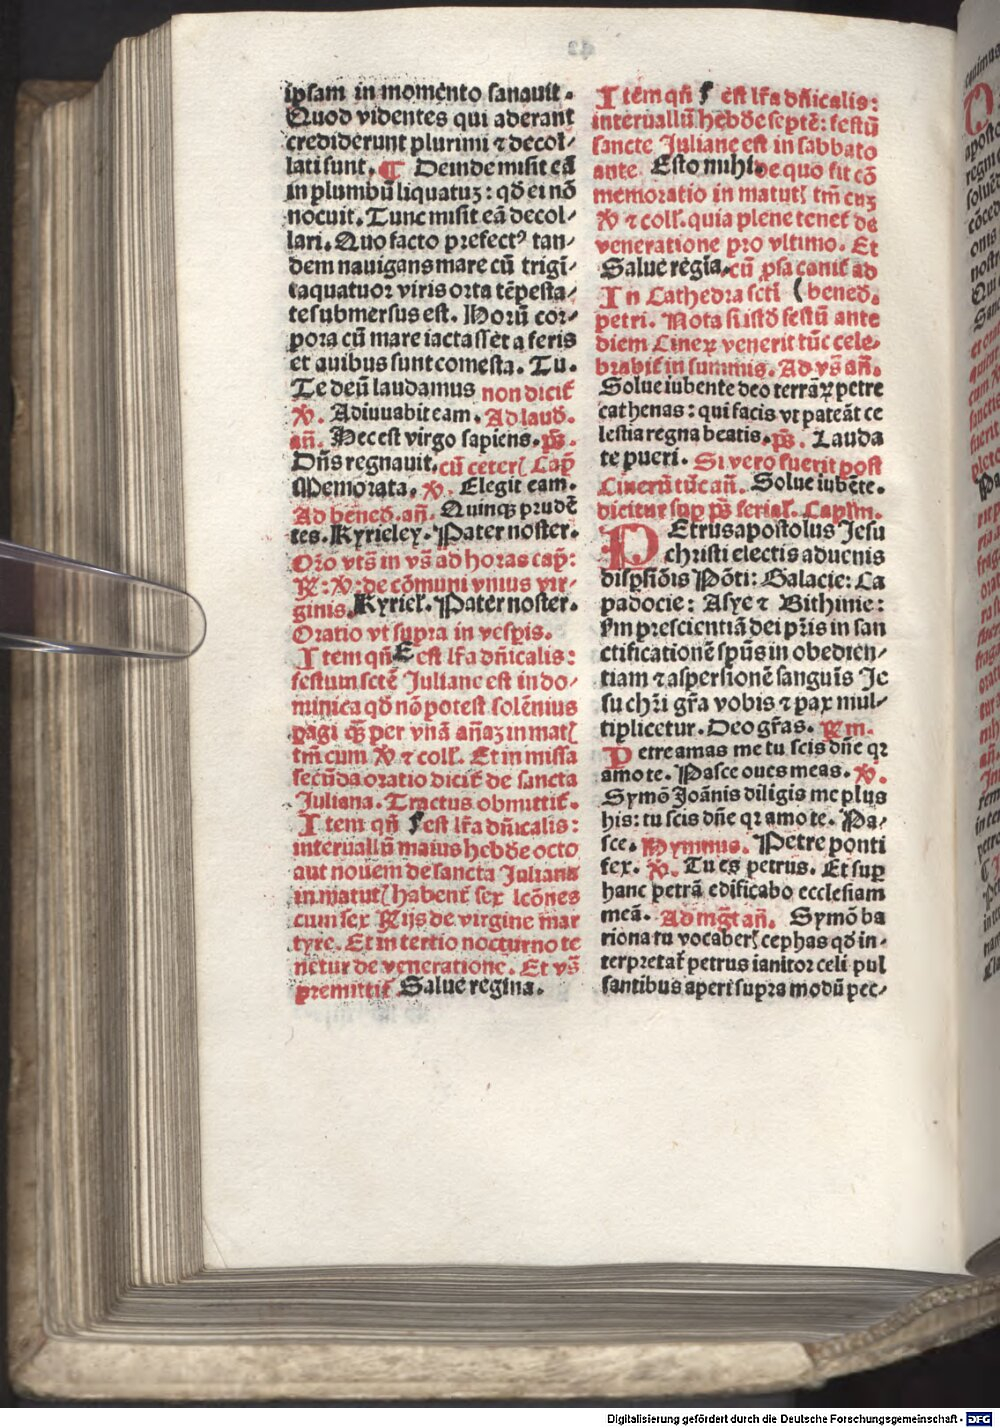 ipsam in momento sanauit.
Quod videntes qui aderant
crediderunt plurimi ⁊ decol⸗
lati sunt. ¶ Deinde misit eā
in plumbū liquatuȝ: qđ ei nō
nocuit. Tunc misit eā decol⸗
lari. Quo facto prefectꝰ tan⸗
dem nauigans mare cū trigī⸗
taquatuor viris orta tēpesta⸗
te submersus est. Horū cor⸗
pora cū mare iactasset a feris
et auibus sunt comesta. Tu.
Te deū laudamus non dicit᷑
℣. Adiuuabit eam. Ad laud.
añ. Hec est virgo sapiens. p̅s̅.
Dñs regnauit. cū ceter᷑ Cap̄
Memorata. ℣. Elegit eam.
Ad bened. añ. Quinqȝ prudē
tes. Kyrieley. Pater noster.
Oro vts̄ in vs̄ ad horas cap̄:
℞: ℣: de cōmuni vnius vir⸗
ginis. Kyriel. Pater noster.
Oratio vt supra in vesp̄is.
Item qñ E est lr̄a dñicalis:
festum sctē Juliane est in do⸗
minica qđ nō potest solēnius
pagi qȝ per vnā añaȝ in mat᷑
tm̄ cum ℣ ⁊ coll. Et in missa
secūda oratio dicit᷑ de sancta
Juliana. Tractus obmittit᷑.
Item qñ f est lr̄a dñicalis:
interuallū maius hebđe octo
aut nouem de sancta Juliana
in matut᷑ habent᷑ sex lcōnes
cum sex ℞ijs de virgine mar
tyre. Et in tertio nocturno te
netur de veneratione. Et vs̄
premittit᷑ Salue regina.
Item qñ f est lr̄a dñicalis:
interuallū hebđe septē: festū
sancte Juliane est in sabbato
ante Esto mihi. de quo fit cō
memoratio in matut᷑ tm̄ cuȝ
℣ ⁊ coll. quia plene tenet᷑ de
veneratione pro vltimo. Et
Salue regīa. cū p̄sa canit᷑ ad
In Cathedra sctī ( bened.
petri. Nota si istđ festū ante
diem Cineꝝ venerit tūc cele⸗
brabit᷑ in summis. Ad vs̄ añ.
Solue iubente deo terraꝝ petre
cathenas: qui facis vt pateāt ce
lestia regna beatis. p̅s̅. Lauda
te pueri. Si vero fuerit post
Cinerū tūc añ. Solue iubēte.
dicitur sup p̅s̅ serial. Caplm.
PEtrus apostolus Jesu
christi electis aduenis
dispsiōis Pōti: Galacie: Ca
padocie: Asye ⁊ Bithinie:
s̄m prescientiā dei pr̄is in san
ctificationē spūs in obedien⸗
tiam ⁊ aspersionē sanguīs Je
su chr̄i gr̄a vobis ⁊ pax mul⸗
tiplicetur. Deo gr̄as. ℞m.
Petre amas me tu scis dñe qꝛ
amo te. Pasce oues meas. ℣.
Symō Joānis diligis me plus
his: tu scis dñe qꝛ amo te. Pa⸗
sce. Hymnus. Petre ponti
fex. ℣. Tu es petrus. Et sup
hanc petrā edificabo ecclesiam
meā. Ad mgt̄ añ. Symō ba
riona tu vocaber᷑ cephas qđ in⸗
terpretat᷑ petrus ianitor celi pul
santibus aperi supra modū pec⸗
Digitalisierung gefördert durch die Deutsche Forschungsgemeinschaft - DFG